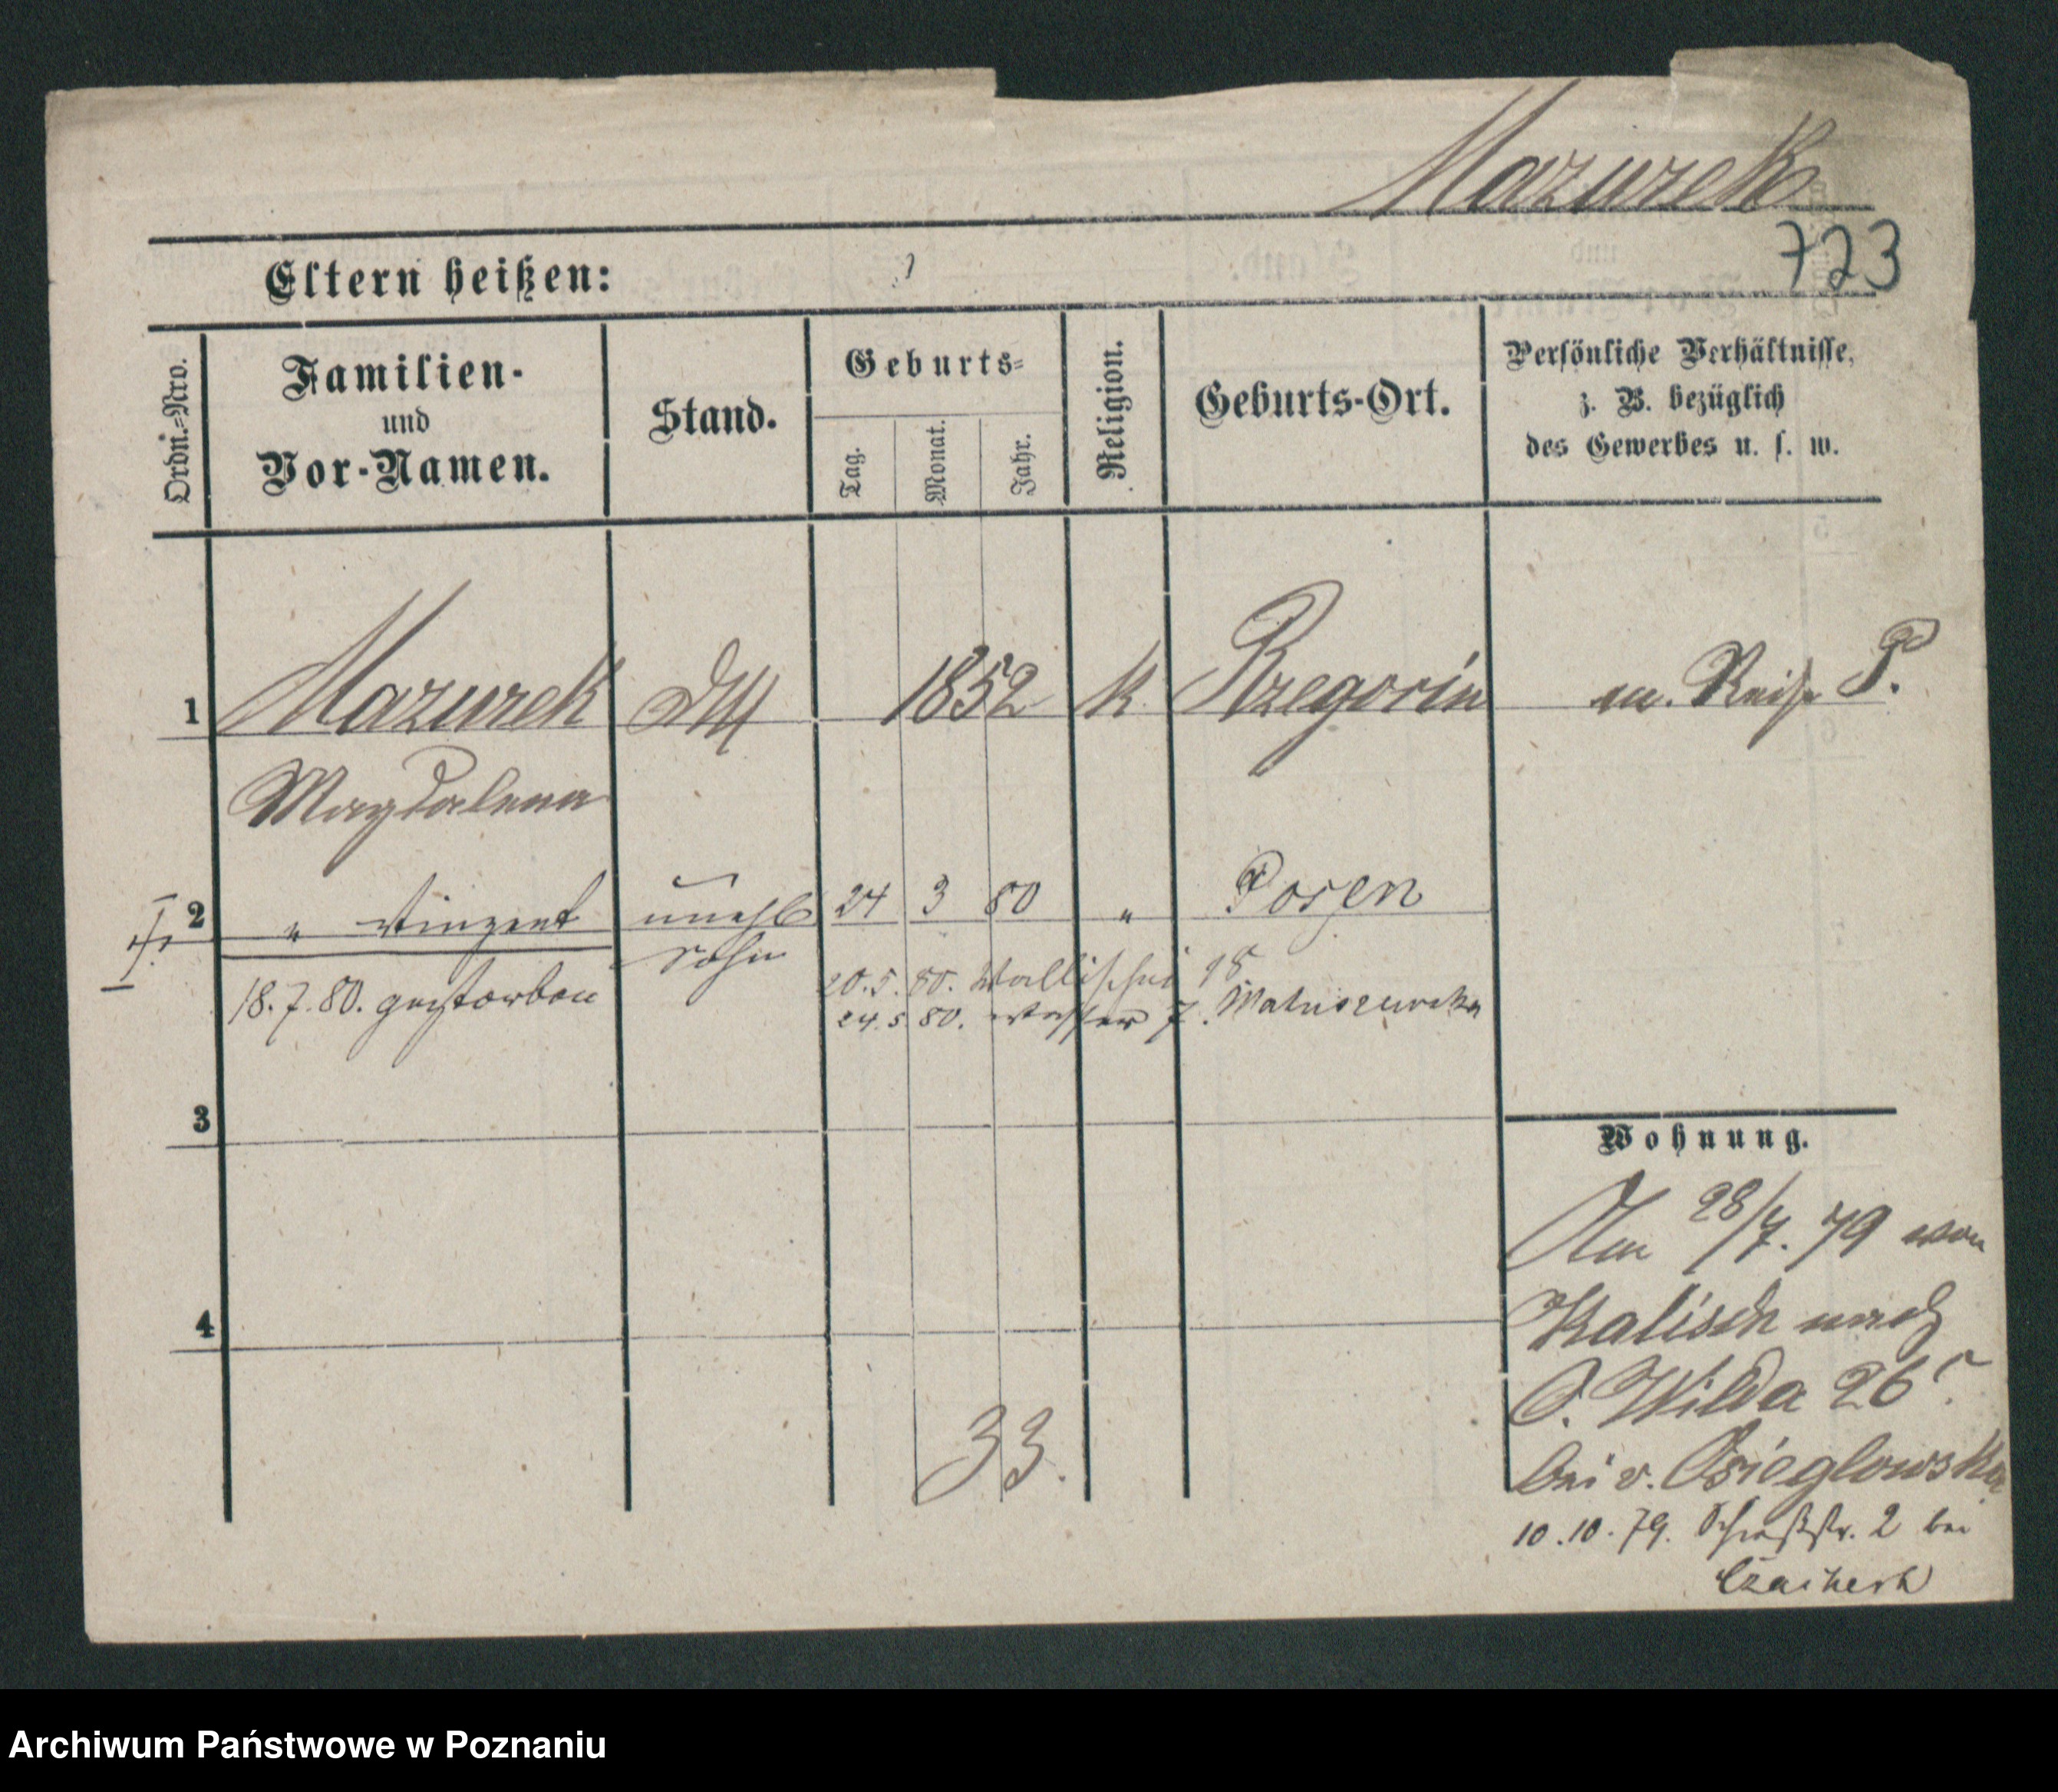 Mazurek
723
Eltern heißen: ?
Ordn.-Nro.
Familien-
und
Vor-Namen.
Stand.
Geburts-
Tag.
Monat.
Jahr.
Religion.
Geburts-Ort.
Persönliche Verhältnisse,
z. B. bezüglich
des Gewerbes u. s. w.
1 Mazurek 1852 k. m. Reise P.
Magdalena
2 " Vinzent unehl 24 3 80 " Posen
Sohn
18.7.80. gestorben
20.5.80. Wallischei 98
24.5.80. Wasser 7.
3
4
Wohnung.
Am 28/7. 79 von
Kalisch nach
O. Wilda 26
bei v.
10.10.79. Schießstr. 2 bei
33.
Archiwum Państwowe w Poznaniu